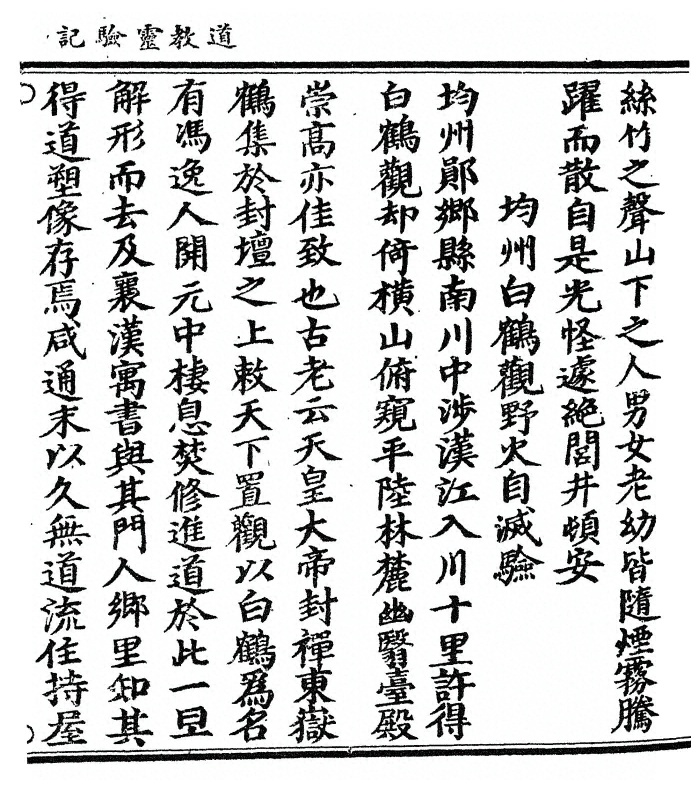 道教靈驗記
絲竹之聲山下之人男女老幼皆隨煙霧騰
躍而散自是光怪遽絕閭井頓安
均州白鶴觀野火自滅驗
均州鄖鄉縣南川中涉漢江入川十里許得
白鶴觀却倚橫山俯窺平陸林麓幽翳臺殿
崇高亦佳致也古老云天皇大帝封禪東嶽
鶴集於封壇之上敕天下置觀以白鶴爲名
有馮逸人開元中棲息焚修進道於此一旦
解形而去及襄漢寓書與其門人鄉里知其
得道塑像存焉咸通末以久無道流住持屋